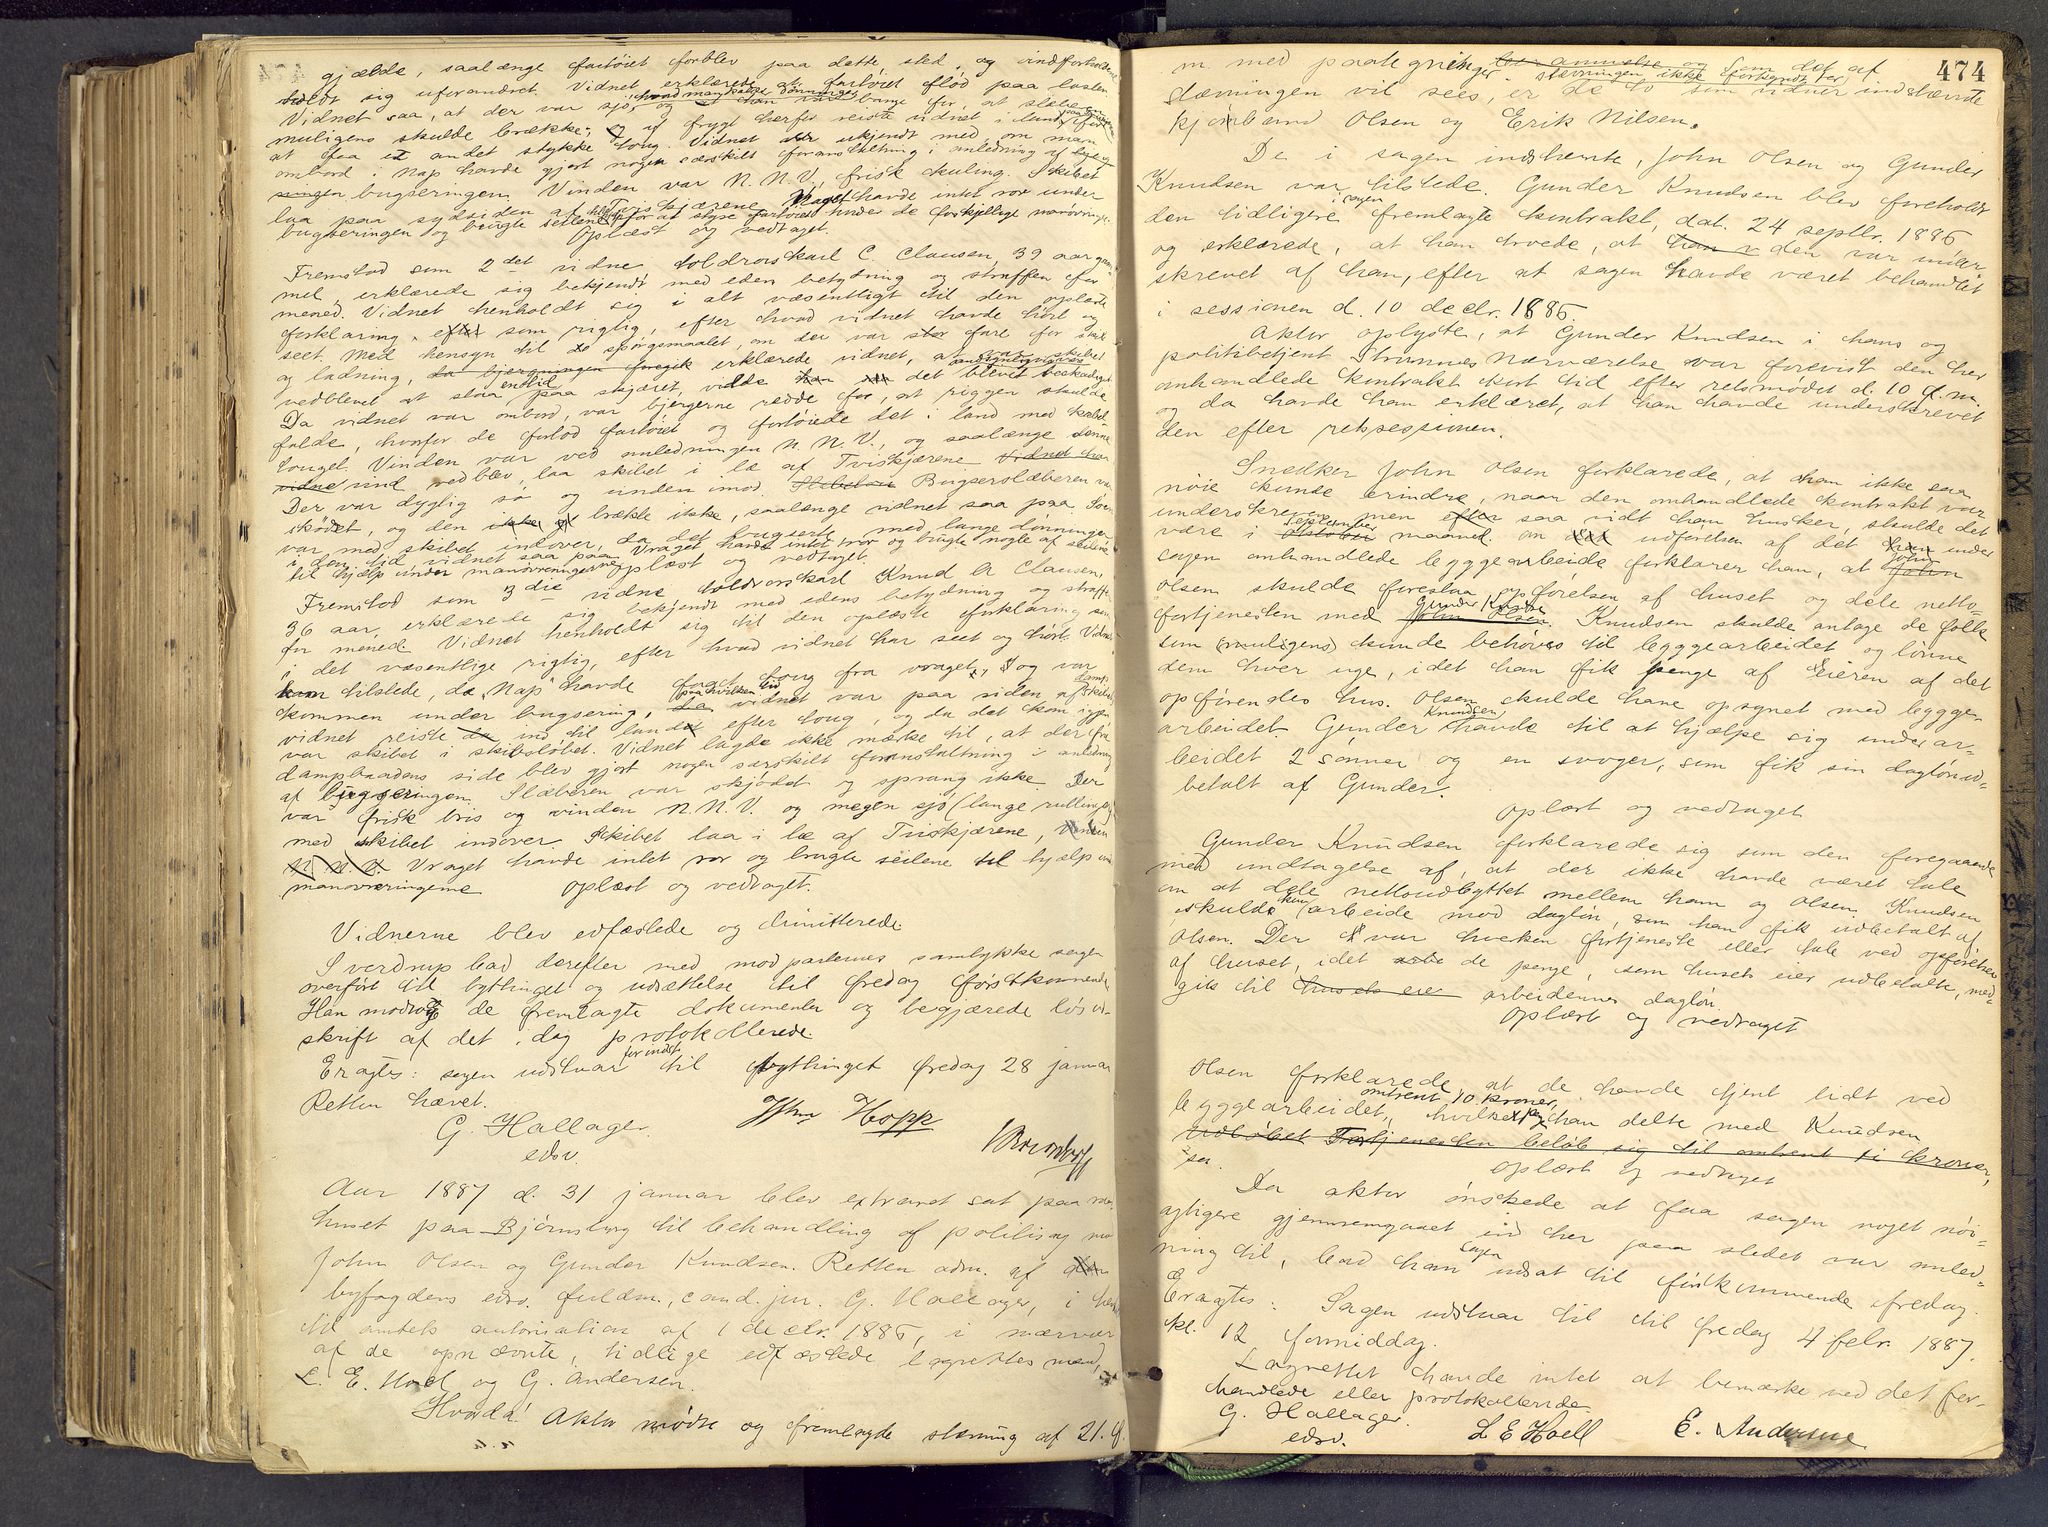 gjælde, saalænge fartøiet forblev paa dette sted, og vindforholdene
holdt sig uforandret. Vidnet erklærede at fartøiet flød paa lasten.
Vidnet saa, at der var sjø, og han var bange for, at slæberen
muligens skulde brække; og af frygt herfor reiste vidnet i land for
at faa et andet stykke toug. Vidnet er ukjendt med, om man
ombord i Nap havde gjort nogen særskilt foranstaltning i anledning af
bugseringen. Vinden var N.N.V, frisk kuling. Skibet
laa paa sydsiden af Tviskjærene. Vraget havde intet ror under
bugseringen og brugte seilene for at styre fartøiet under de forskjellige manøvringer.
Oplæst og vedtaget.
Fremstod som 2det vidne toldrorskarl C. Clausen, 39 aar gam-
mel, erklærede sig bekjendt med eden betydning og straffen for
mened. Vidnet henholdt sig i alt væsentligt til den oplæste
forklaring, som rigtig, efter hvad vidnet havde hørt og
seet. Med hensyn til spørgsmaalet, om der var stor fare for skib
og ladning, da bjergningen foregik erklærede vidnet, at var skibet
vedblevet at staa paa skjæret, vilde det blevet beskadiget.
Da vidnet var ombord, var bjergerne redde for, at riggen skulde
falde, hvorfor de forlod fartøiet og fortøiede det i land med kabel-
touget. Vinden var ved anledningen N.N.V., og saalænge denne
vind vedblev, laa skibet i læ af Tviskjærene
Der var dygtig sø og unden imod. Bugserslæberen var
skødet, og den brække ikke, saalænge vidnet saa paa. Som
var med skibet indover, da det bugserte, med lange dønninger
i den tid vidnet saa paa. Vraget havde intet ror og brugte nogle af seilene
til hjælp under manøvreringerne oplæst og vedtaget.
Fremstod som 3die vidne toldrorskarl Knud A Clausen,
36 aar, erklærede sig bekjendt med edens betydning og straffen
for mened. Vidnet henholdt sig til den oplæste forklaring som
i det væsentlige rigtig, efter hvad vidnet har seet og hørt. Vidnet
kom tilstede, da "Nap" havde faaet toug fra vraget, og var
kommen under bugsering, paa hvilken tid vidnet var paa siden af dampskibet
vidnet reiste ind til landet efter toug, og da det kom igjen
var skibet i skibsløbet. Vidnet lagde ikke mærke til, at der fra
dampbaadens side blev gjort nogen særskilt foranstaltning i anledning
af bugseringen. Slæberen var skjødet og sprang ikke. Der
var frisk bris og vinden N.N.V. og megen sjø (lange rullinger)
med skibet indover. Skibet laa i læ af Tviskjærene,
Vraget havde intet ror og brugte seilene til hjælp under
manøvreringerne oplæst og vedtaget.
Vidnerne blev edfæstede og dimitterede.
Sverdrup bad derefter med modpartens samtykke sagen
overført til bythinget og udsættelse til fredag førstkommende
Han modtog de fremlagte dokumenter og begjærede løsud-
skrift af det i dag protokollerede.
Eragtes: sagen udstaar forindst. til bythinget fredag 28 januar
Retten hævet.
G. Hallager John Hopp
edsv.
Aar 1887 d. 31 januar blev extraret sat paa raad-
huset paa Bjørnsborg til behandling af politisag mod
John Olsen og Gunder Knudsen. Retten adm. af
byfogdens edsv. fuldm., cand. jur. G. Hallager, i hen
til amtets autorisation af 1 decbr. 1886, i nærvær
af de opnævnte, tidligere edfæstede lagrettesmænd,
L. E. Hoel og G. Andersen.
Hvorda: Aktor mødte og fremlagde stævning af 21. d.
474
m med paategninger. Som det af
stævningen vil sees, er de to som vidner indstævnte
Olsen og Erik Nilsen.
De i sagen indstævnte, John Olsen og Gunder
Knudsen var tilstede. Gunder Knudsen blev foreholdt
den tidligere i sagen fremlagte kontrakt, dat. 24 septbr. 1886
og erklærede, at han troede, at den var under-
skrevet af ham, efter at sagen havde været behandlet
i sessionen d. 10 decbr. 1886.
Aktor oplyste, at Gunder Knudsen i hans og
politibetjent Strømnes nærværelse var forevist den her
omhandlede kontrakt kort tid efter retsmødet d. 10 d. m.
og da havde han erklæret, at han havde underskrevet
den efter retssessionen.
Snedker John Olsen forklarede, at han ikke saa
nøie kunde erindre, naar den omhandlede kontrakt var
underskreven, men saa vidt han husker, skulde det
være i september maaned. om udførelsen af det under
sagen omhandlede byggearbeide forklarer han, at John
Olsen skulde forestaa opførelsen af huset og dele netto-
fortjenesten med Gunder Knudsen. Knudsen skulde antage de folk
som (muligens) kunde behøves til byggearbeidet og lønne
dem hver uge, idet han fik penge af Eieren af det
opførendes hus. Olsen skulde have opsynet med bygge-
arbeidet Gunder Knudsen havde til at hjælpe sig under ar-
beidet 2 sønner og en svoger, som fik sin dagløn ud-
betalt af Gunder.
oplæst og vedtaget
Gunder Knudsen forklarede sig som den foregaaende
med undtagelse af, at der ikke havde været tale
om at dele nettoudbyttet mellem ham og Olsen. Knudsen
skulde kun arbeide mod dagløn, som han fik udbetalt af
Olsen. Der var hverken fortjeneste eller tale ved opførelsen
af huset, idet de penge, som husets eier udbetalte, med-
gik til arbeidernes dagløn
oplæst og vedtaget
Olsen forklarede, at de havde tjent lidt ved
byggearbeidet, omtrent 10 kroner, hvilke penge han delte med Knudsen
Fortjenesten beløb sig til omtrent ti kroner,
oplæst og vedtaget
Da aktor ønskede at faa sagen noget nøi-
agtigere gjennemgaaet end her paa stedet var anled-
ning til, bad han sagen udsat til førstkommende fredag.
Eragtes: Sagen udstaar til til fredag 4 febr. 1887.
kl. 12 formiddag.
Lagrettet havde intet at bemærke ved det for-
handlede eller protokollerede.
G. Hallager. L E Hoell E. Andersen
edsv.